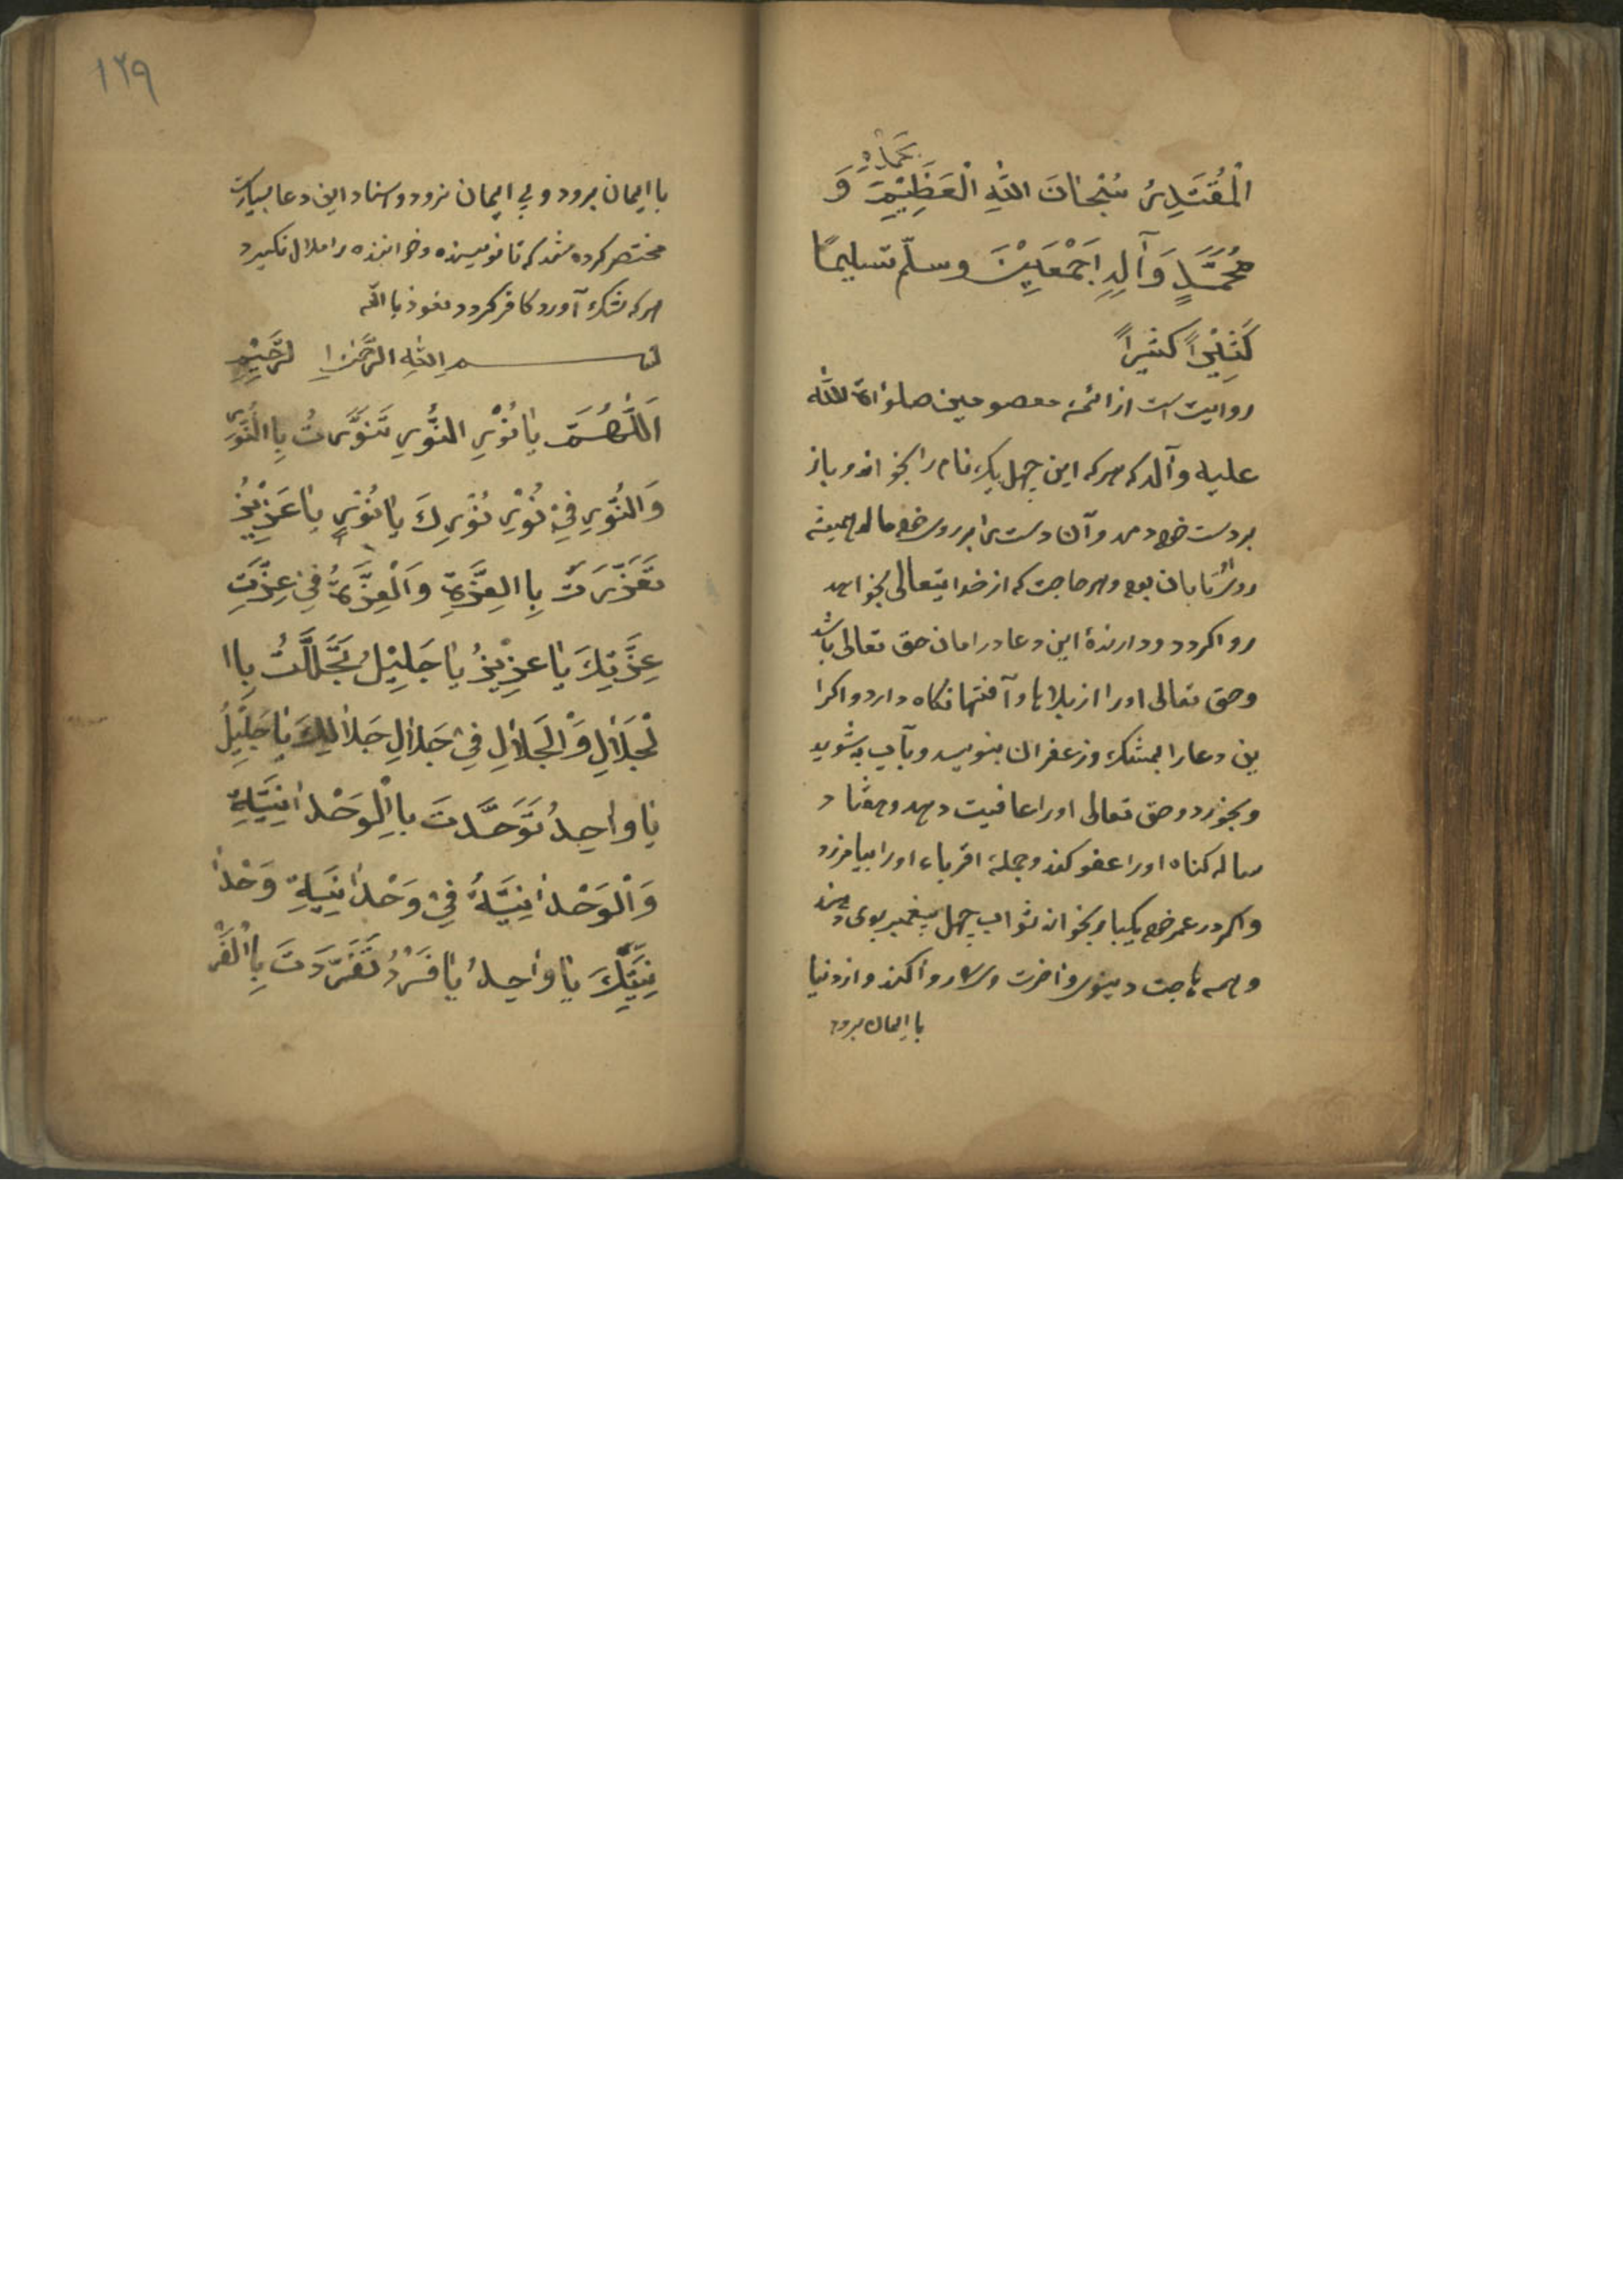 اَلْمُقْتَدِرُ سُبْحٰانَ اللّٰهِ الْعَظِيْمِ بِحَمْدِهِ وَ
مُحَمَّدٍ وَآلِهِ اَجْمَعَيْنَ وسلّم تسليمًا
كَثِيْراً كثيراً
روایت است از ائمهٔ معصومین صلواة اللّه
علیه وآله که هر که این چهل یک نام را بخواند و باز
بر دست خود دمد و آن دست را بر روی خود مالد همیشه
بود و هر حاجت که از خدایتعالی بخواهد
روا کردد و دارندهٔ این دعا در امان حق تعالی باشد
وحق تعالی اورا از بلاها و آفتها نکاه دارد و اکر ا
ین دعا را بمشک وزعفران بنویسد و بآب بشوید
وبخورد وحق تعالی اورا عافیت دهد و هفتاد
ساله کناه اورا عفو کند و جملهٔ اقرباء اورا بیامرزد
واکر در عمر خود یکبار بخواند ثواب چهل پیغمبر بوی دهند
وهمه حاجت دینوی واخرت روا کند و از دنیا
با ایمان برود
١٢٩
با ایمان برود و بی ایمان نرود و اسناد این دعا بسیارست
مختصر کرده شد که تا نویسنده و خواننده را ملال نکیرد
هر که شک آورد کافر کردد نعوذ با اللّه
بسم اللّه الرَّحْمٰنِ ا لرَّحِيْمِ
اَللّٰهُمَّ يٰا نُوْرِ النُّوْرِ تَنَوَّرتُ بِا النُّوْرِ
وَالنُّوْرِ فِيْ نُوْرِ نُوْرِكَ يٰا نُوْرِ يٰا عَزِيْزُ
تَعَزّرَتَ بِا العِزَّةِ وَالْعِزَّةُ فِيْ عِزَّتِ
عِزَّتِكَ يٰا عزِيْزُ يٰا جَلِيْلُ تَجَلَّلتُ بِاا
لْجَلاٰلِ وَالْجَلاٰلِ فِيْ جَلاٰلِ جَلاٰلِكَ يٰا جَلِيْلُ
يٰا واٰحِدُ تَوَحَّدتَ بااِلْوَحْداٰنِيَّةِ
وَالْوَحْداٰنِيَّةُ فِيْ وَحْداٰنِيَةِ وَحْداٰ
نِيَّتِكَ يٰا واٰحِدُ يٰا فَرْدُ تَفَرّدَتَ بِاالْفَرْ